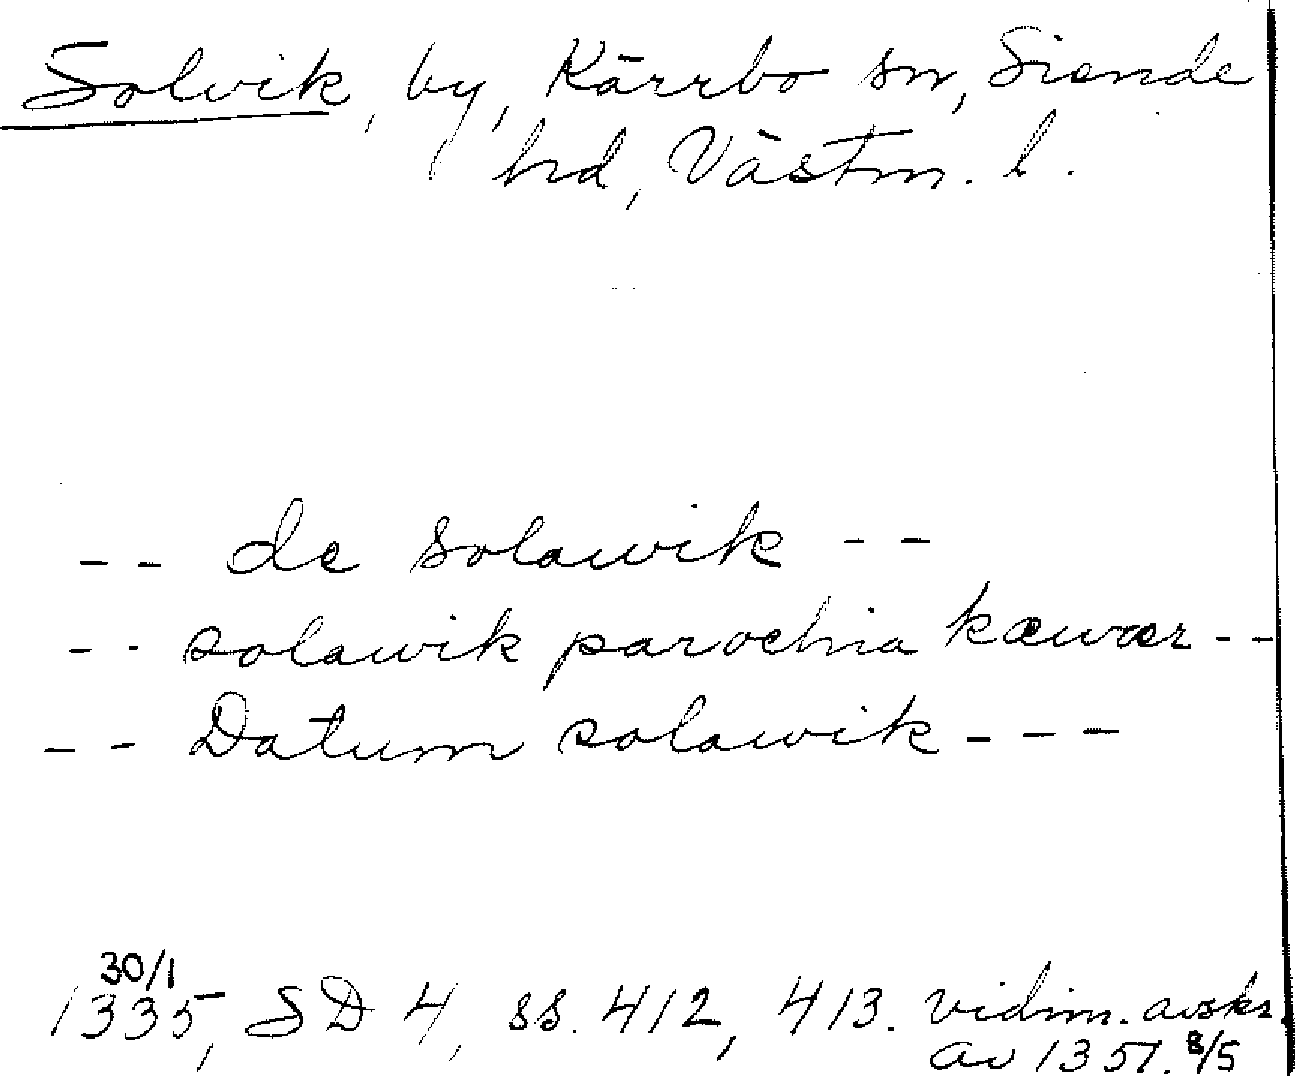 Solvik, by, Kärrbo sn, Siende
hd, Västm. l.
-- de solawik --
-- solawik parochia kæwær --
-- Datum solawik ---
30/1
1335, SD 4, ss. 412, 413. vidim. avskr.
av 1351. 8/5